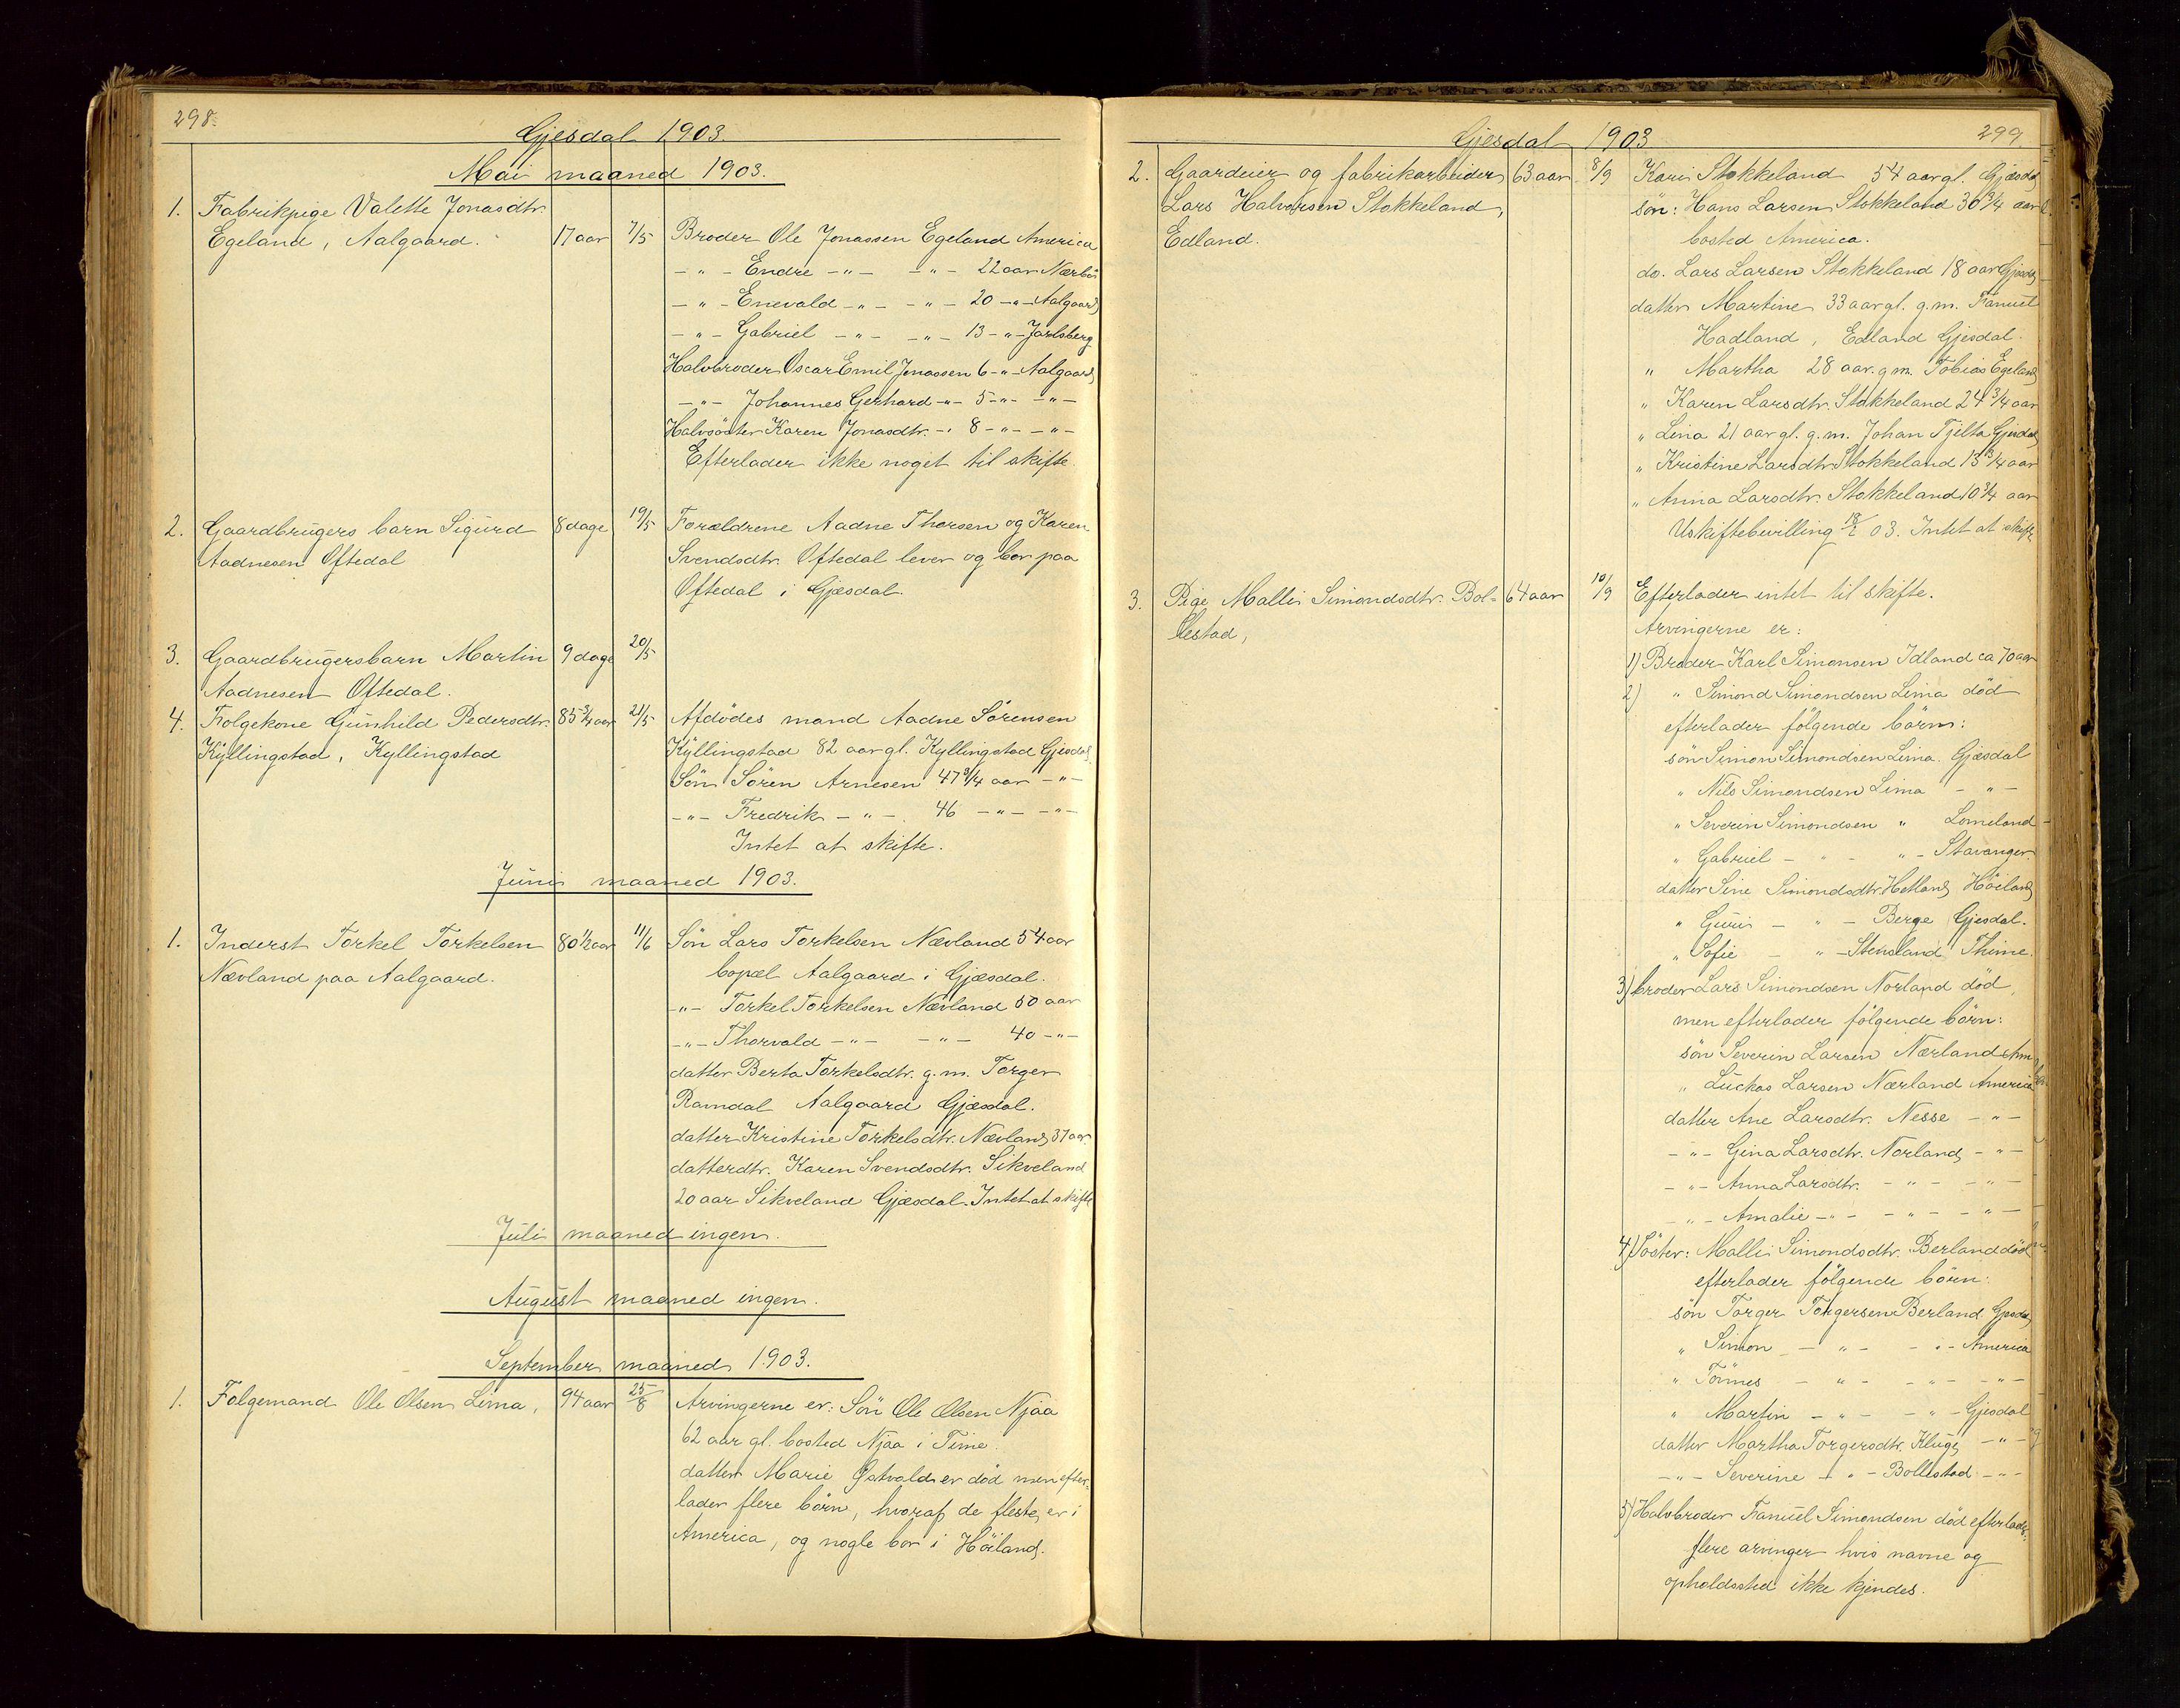 298.
Gjesdal 1903.
Mai maaned 1903.
1. Fabrikpige Valette Jonasdtr.
Egeland, Aalgaard. 17 aar 7/5 Broder Ole Jonassen Egeland America
-"- Endre -"- -"- 22 aar Nærbø
-"- Enevald -"- -"- 20 -"- Aalgaard
-"- Gabriel -"- -"- 13 -"- Jarlsberg
Halvbroder Oscar Emil Jonassen 6 -"- Aalgaard
-"- Johannes Gerhard -"- 5 -"- -"-
Halvsöster Karen Jonasdtr. -"- 8 -"- -"-
Efterlader ikke noget til skifte.
2. Gaardbrugers barn Sigurd 8 dage 19/5 Forældrene Aadne Thorsen og Karen
Aadnesen Oftedal Svendsdtr. Oftedal lever og bor paa
Oftedal i Gjæsdal.
3. Gaardbrugersbarn Martin 9 dage 20/5
Aadnesen Oftedal.
4. Folgekone Gunhild Pedersdtr. 85 3/4 aar 21/5 Afdödes mand Aadne Sörensen
Kyllingstad, Kyllingstad Kyllingstad 82 aar gl. Kyllingstad Gjesdal.
Sön Sören Arnesen 47 3/4 aar -"-
-"- Fredrik -"- 46 -"- -"-
Intet at skifte.
Juni maaned 1903.
1. Inderst Torkel Torkelsen 80 1/2 aar 11/6 Sön Lars Torkelsen Nævland 54 aar
Nævland paa Aalgaard. bopæl Aalgaard i Gjæsdal.
-"- Torkel Torkelsen Nævland 50 aar
-"- Thorvald -"- -"- 40 -"-
datter Berta Torkelsdtr. g. m. Torger
Ramdal Aalgaard Gjæsdal.
datter Kristine Torkelsdtr. Nævland 37 aar
datterdtr. Karen Svendsdtr. Sikveland
20 aar Sikveland Gjæsdal. Intet at skifte
Juli maaned ingen.
August maaned ingen.
September maaned 1903.
1. Folgemand Ole Olsen Lima, 94 aar 25/8 Arvingerne er: Sön Ole Olsen Njaa
62 aar gl. bosted Njaa i Time.
datter Marie Østvold er død men efter-
lader flere börn, hvoraf de fleste er i
America, og nogle bor i Höiland.
Gjesdal 1903. 299
2. Gaardeier og fabrikarbeider 63 aar 8/9 Kari Stokkeland 54 aar gl. Gjæsdal
Lars Halvorsen Stokkeland, sön: Hans Larsen Stokkeland 30 3/4 aar
Edland. bosted America.
do. Lars Larsen Stokkeland 18 aar Gjesdal
datter Martine 33 aar gl. g. m. Fanuel
Hadland, Edland Gjesdal.
" Martha 28 aar. g m. Tobias Egeland
" Karen Larsdtr. Stokkeland 24 3/4 aar
" Lina 21 aar gl. g. m. Johan Tjelta Gjesdal
" Kristine Larsdtr Stokkeland 13 3/4 aar
" Anna Larsdtr. Stokkeland 10 3/4 aar
Uskiftebevilling 03. Intet at skifte
3. Pige Malli Simondsdtr. Bol- 64 aar 10/9 Efterlader intet til skifte.
lestad, Arvingerne er:
1) Broder Karl Simonsen Idland ca 70 aar
2) " Simond Simondsen Lima död
efterlader fölgende börn:
sön Simon Simondsen Lima. Gjæsdal
" Nils Simondsen Lima - " -
" Severin Simondsen " Lomeland
" Gabriel - " - " - Stavanger.
datter Sine Simondsdtr. Hetland Höiland
" Guri - " - Berge Gjesdal.
" Sofie - " - Stensland Thime.
3) broder Lars Simondsen Norland död,
men efterlader fölgende börn:
sön Severin Larsen Nærland Am
" Luckas Larsen Nærland America
datter Ane Larsdtr. Nesse - " -
- " - Gina Larsdtr. Norland - " -
- " - Anna Larsdtr. - " - - " -
- " - Amalie - " - - " - - " -
4) Söster: Malli Simondsdtr. Berland död
efterlader fölgende börn:
sön Torger Torgersen Berland Gjesdal
" Simon - " - - " - America
" Tönnes - " - - " - - " -
" Martin - " - - " - Gjesdal
datter Martha Torgersdtr. Kluge - " -
- " - Severine - " - Bollestad - " -
5) Halvbroder Fanuel Simondsen död efterlader
flere arvinger hvis navne og
opholdssted ikke kjendes.